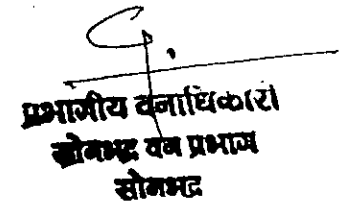 प्रभागीय वनाधिकारी
सोनभद्र वन प्रभाग
सोनभद्र